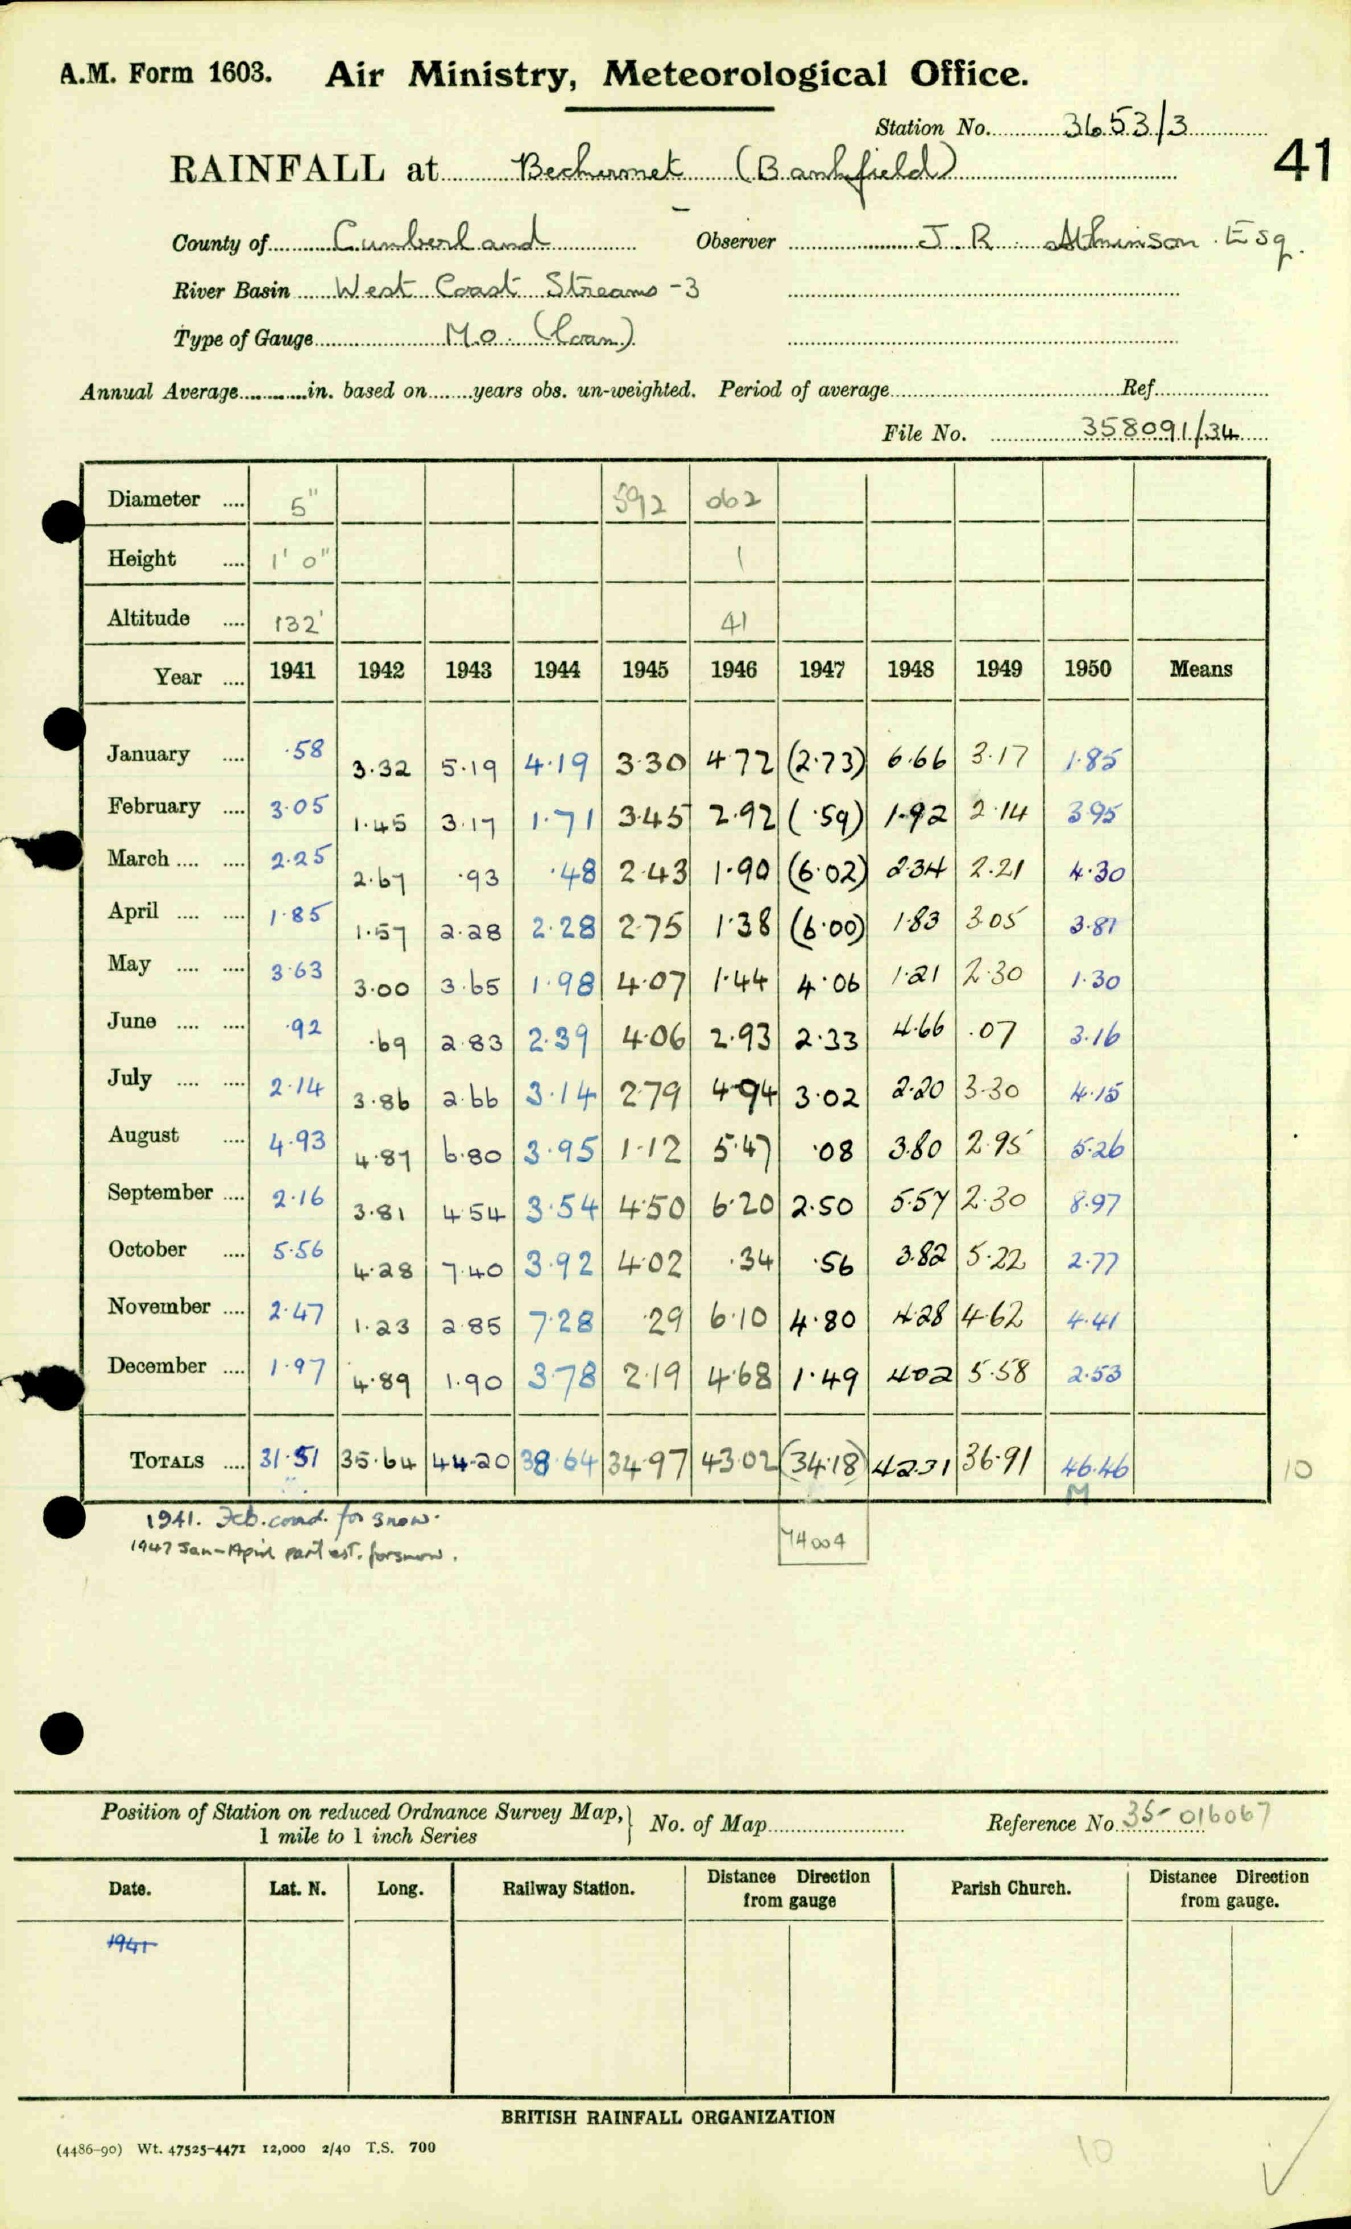 A.M. Form 1603. Air Ministry, Meteorological Office.
Station No. 3653/3
41
RAINFALL at Beckermet (Bankfield)
County of Cumberland Observer J. R. Atkinson Esq.
River Basin West Coast Streams -3
Type of Gauge M.O. (loan)
Annual Average in. based on years obs. un-weighted. Period of average Ref
File No. 358091/34
Diameter 5" 592 062
Height 1' 0" 1
Altitude 132' 41
Year 1941 1942 1943 1944 1945 1946 1947 1948 1949 1950 Means
January ·58 3·32 5·19 4·19 3·30 4·72 (2·73) 6·66 3·17 1·85
February 3·05 1·45 3·17 1·71 3·45 2·92 (·59) 1·92 2·14 3·95
March 2·25 2·67 ·93 ·48 2·43 1·90 (6·02) 2·34 2·21 4·30
April 1·85 1·57 2·28 2·28 2·75 1·38 (6·00) 1·83 3·05 3·81
May 3·63 3·00 3·65 1·98 4·07 1·44 4·06 1·21 2·30 1·30
June ·92 ·69 2·83 2·39 4·06 2·93 2·33 4·66 ·07 3·16
July 2·14 3·86 2·66 3·14 2·79 4·94 3·02 2·20 3·30 4·15
August 4·93 4·87 6·80 3·95 1·12 5·47 ·08 3·80 2·95 5·26
September 2·16 3·81 4·54 3·54 4·50 6·20 2·50 5·57 2·30 8·97
October 5·56 4·28 7·40 3·92 4·02 ·34 ·56 3·82 5·22 2·77
November 2·47 1·23 2·85 7·28 ·29 6·10 4·80 4·28 4·62 4·41
December 1·97 4·89 1·90 3·78 2·19 4·68 1·49 4·02 5·58 2·53
TOTALS 31·51 35·64 44·20 38·64 34·97 43·02 (34·18) 42·31 36·91 46·46 10
M
1941. Feb. cond. for snow.
1947 Jan-April part est. for snow.
74004
Position of Station on reduced Ordnance Survey Map, 1 mile to 1 inch Series } No. of Map Reference No 35-016067
Date. Lat. N. Long. Railway Station. Distance Direction from gauge Parish Church. Distance Direction from gauge.
1941
BRITISH RAINFALL ORGANIZATION
(4486-90) Wt. 47525-4471 12,000 2/40 T.S. 700
10